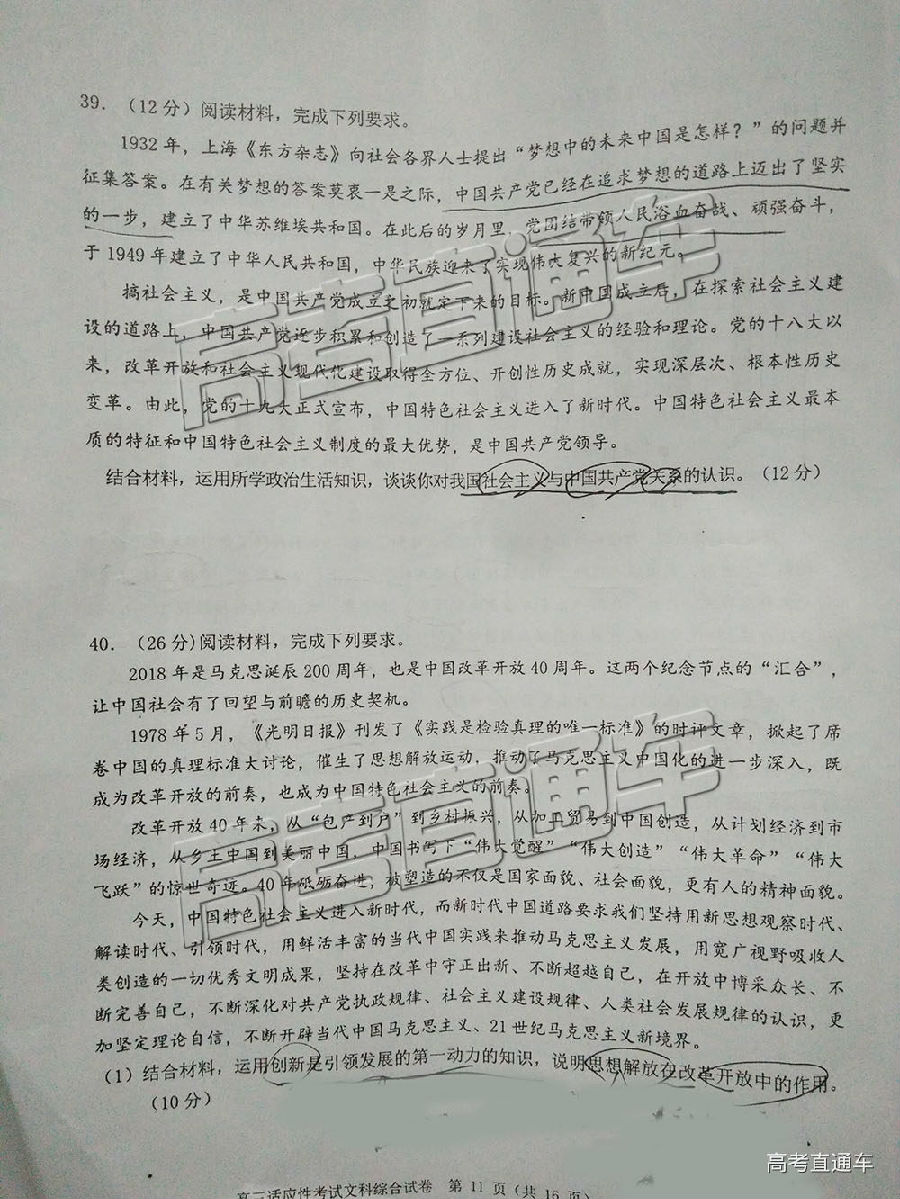 39. （12 分）阅读材料，完成下列要求。
1932 年，上海《东方杂志》向社会各界人士提出“梦想中的未来中国是怎样？”的问题并
征集答案。在有关梦想的答案莫衷一是之际，中国共产党已经在追求梦想的道路上迈出了坚实
的一步，建立了中华苏维埃共和国。在此后的岁月里，党团结带领人民浴血奋战、顽强奋斗，
于 1949 年建立了中华人民共和国，中华民族迎来了实现伟大复兴的新纪元。
搞社会主义，是中国共产党成立之初就定下来的目标。新中国成立后，在探索社会主义建
设的道路上，中国共产党逐步积累和创造了一系列建设社会主义的经验和理论。党的十八大以
来，改革开放和社会主义现代化建设取得全方位、开创性历史成就，实现深层次、根本性历史
变革。由此，党的十九大正式宣布，中国特色社会主义进入了新时代。中国特色社会主义最本
质的特征和中国特色社会主义制度的最大优势，是中国共产党领导。
结合材料，运用所学政治生活知识，谈谈你对我国社会主义与中国共产党关系的认识。（12 分）
40. （26 分）阅读材料，完成下列要求。
2018 年是马克思诞辰 200 周年，也是中国改革开放 40 周年。这两个纪念节点的“汇合”，
让中国社会有了回望与前瞻的历史契机。
1978 年 5 月，《光明日报》刊发了《实践是检验真理的唯一标准》的时评文章，掀起了席
卷中国的真理标准大讨论，催生了思想解放运动，推动了马克思主义中国化的进一步深入，既
成为改革开放的前奏，也成为中国特色社会主义的前奏。
改革开放 40 年来，从“包产到户”到乡村振兴，从加工贸易到中国创造，从计划经济到市
场经济，从乡土中国到美丽中国，中国书写下“伟大觉醒”“伟大创造”“伟大革命”“伟大
飞跃”的惊世奇迹。40 年砥砺奋进，被塑造的不仅是国家面貌、社会面貌，更有人的精神面貌。
今天，中国特色社会主义进入新时代，而新时代中国道路要求我们坚持用新思想观察时代、
解读时代、引领时代，用鲜活丰富的当代中国实践来推动马克思主义发展，用宽广视野吸收人
类创造的一切优秀文明成果，坚持在改革中守正出新、不断超越自己，在开放中博采众长、不
断完善自己，不断深化对共产党执政规律、社会主义建设规律、人类社会发展规律的认识，更
加坚定理论自信，不断开辟当代中国马克思主义、21 世纪马克思主义新境界。
（1）结合材料，运用创新是引领发展的第一动力的知识，说明思想解放在改革开放中的作用。
（10 分）
高三适应性考试文科综合试卷 第 11 页（共 15 页）
高考直通车
高考直通车
高考直通车